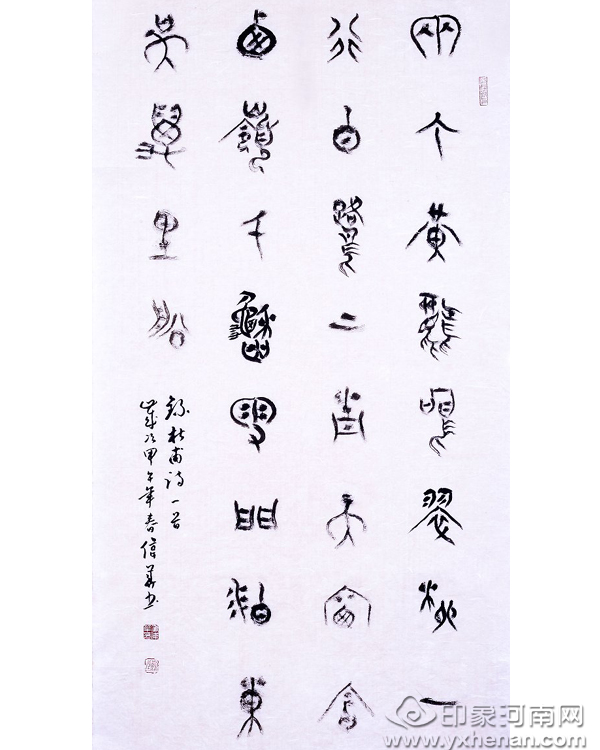 兩个黃鸝鳴翠柳一
行白鷺上青天窗含
西嶺千秋雪門泊東
吳萬里船
錄杜甫詩一首
歲次甲午年春書
印象河南网
www.yxhenan.com